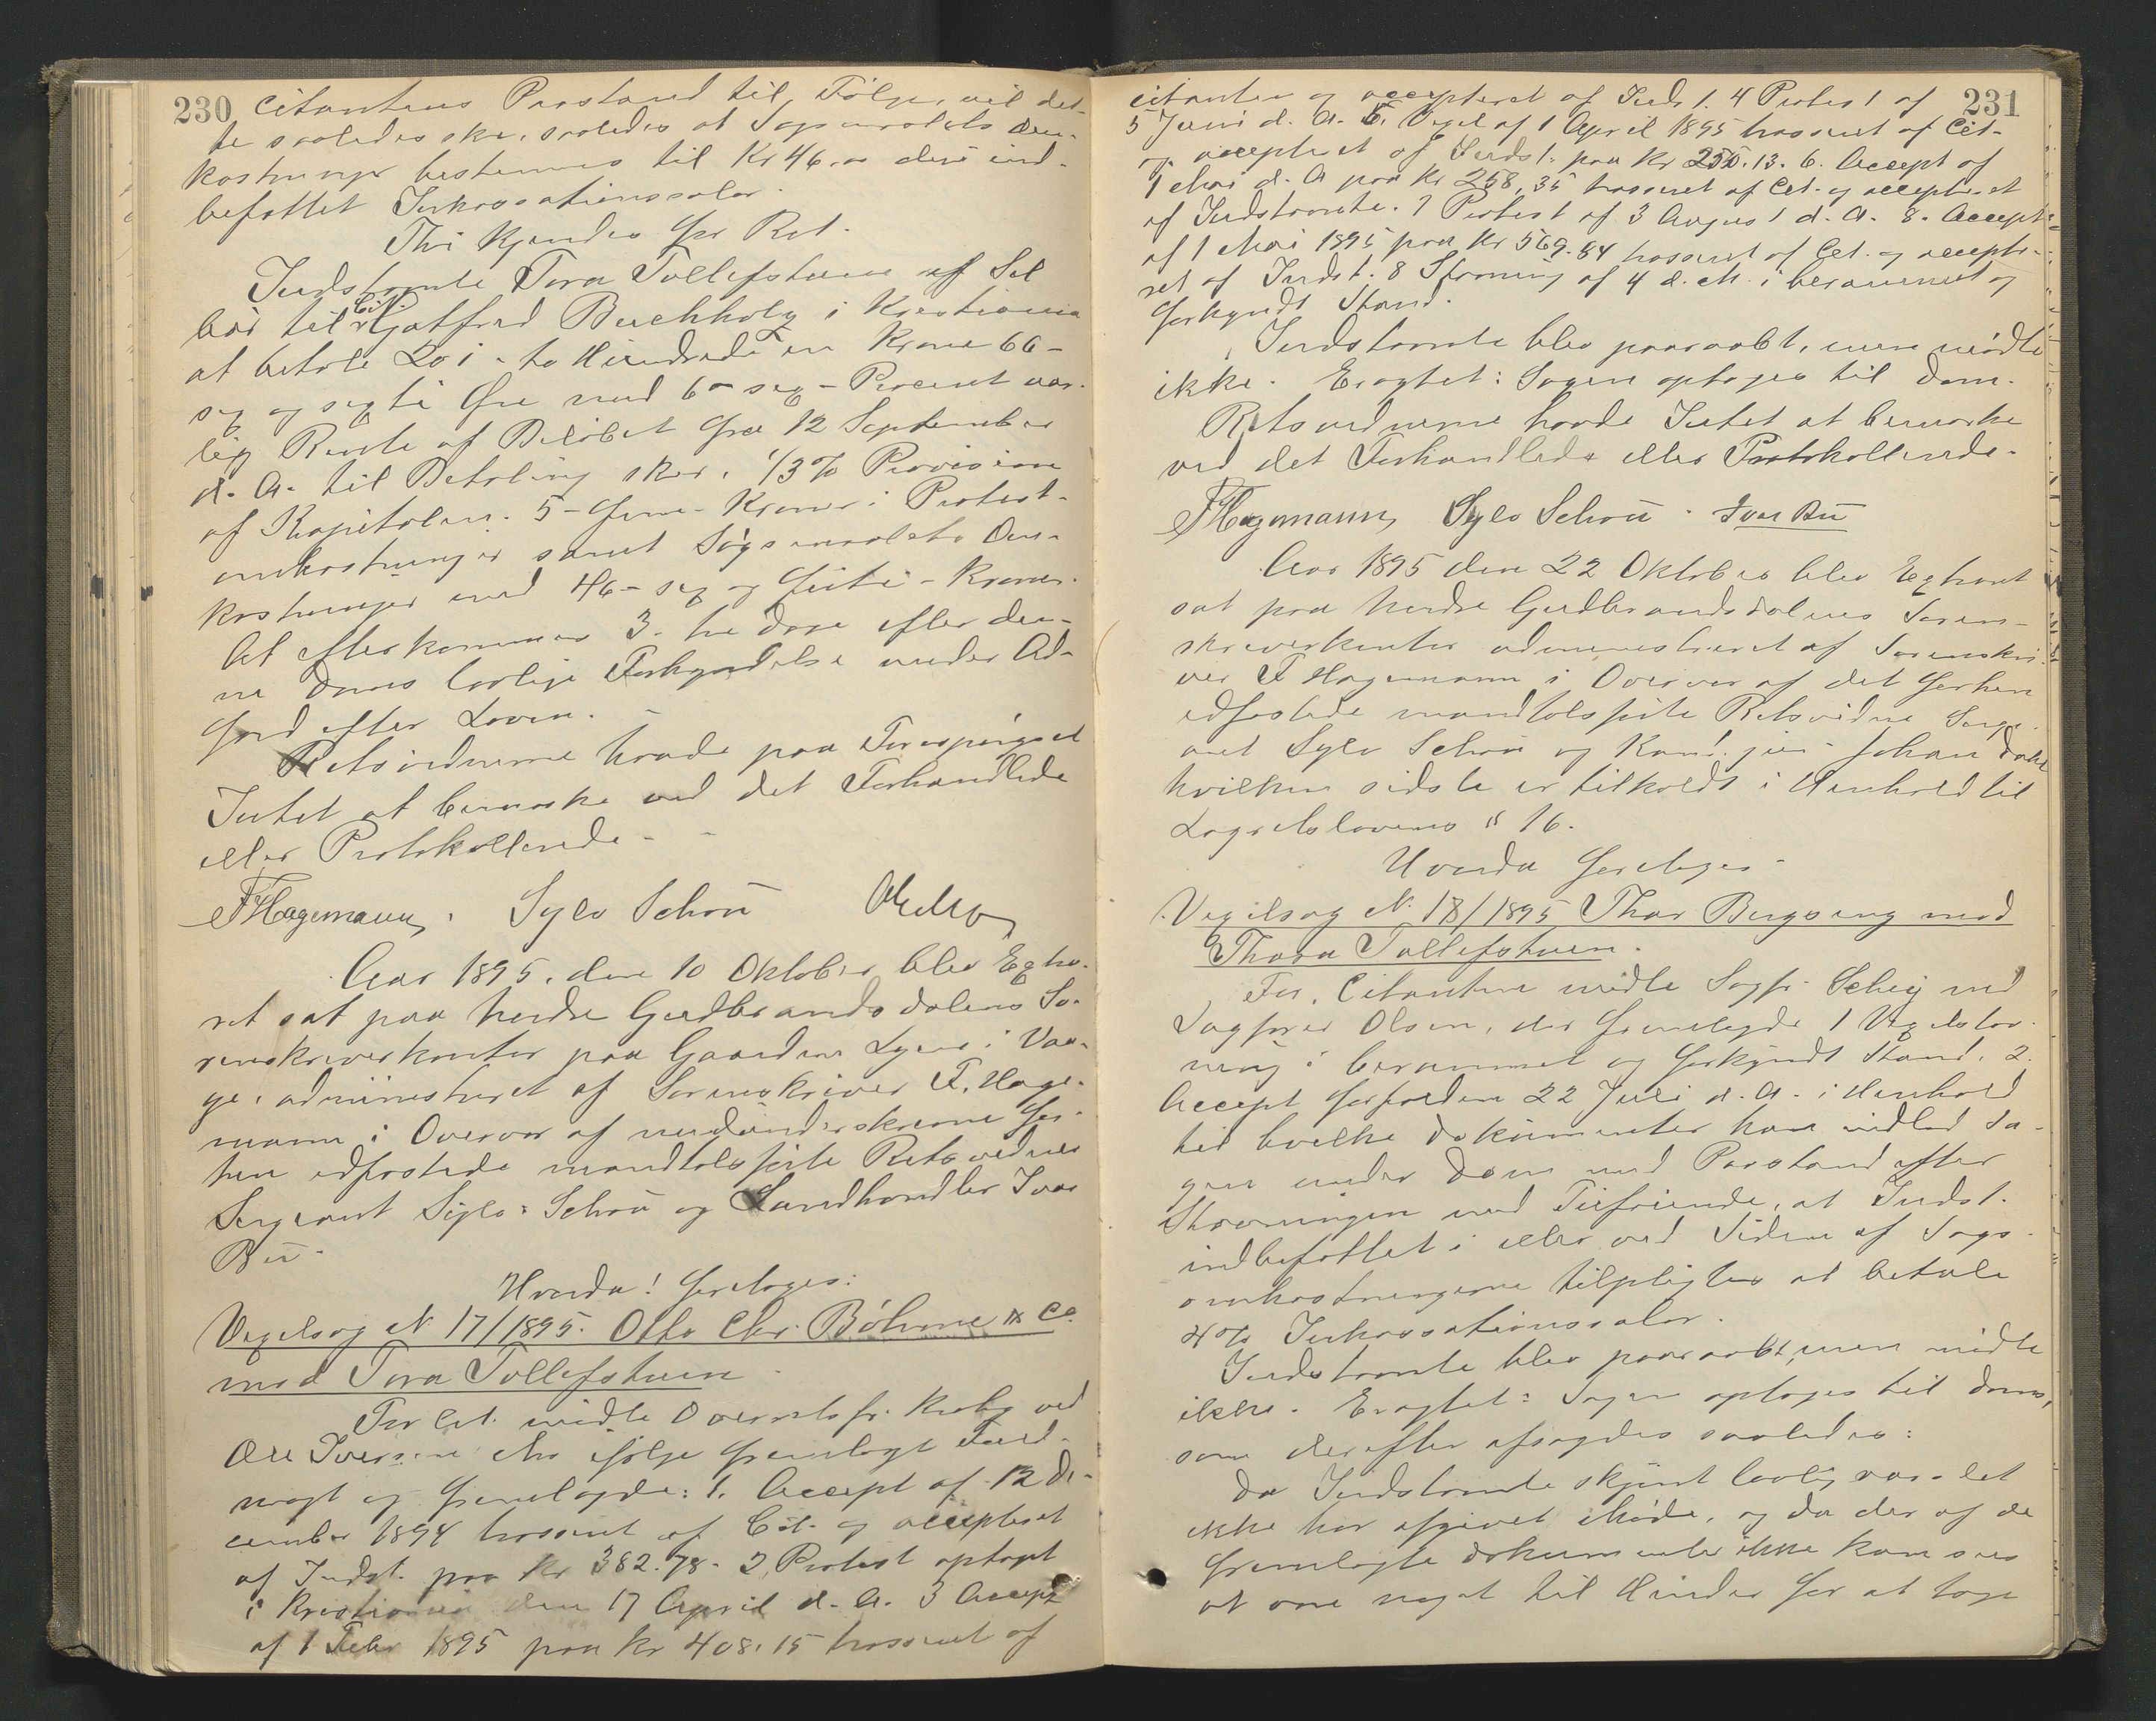 230
citantens Paastand til Følge, vil det-
te saaledes ske, saaledes at Søgsmaalets Om-
kostninger bestemmes til Kr 46,00 deri ind-
befattet Inkassationssalær.
Thi kjendes for Ret.
Indstevnte Tora Tollefshuen af Sel
bør til Cit. Gotfred Buchholz i Kristiania
at betale 201 - to Hundrede en Krone 66 -
sex og sexti Øre med 6 - sex - Procent aar-
lig Rente af Beløbet fra 12 September
d. A. til Betaling sker, 1/3 % Provision
af Kapitalen. 5 - fem - Kroner i Protest-
omkostninger samt Søgsmaalets Om-
kostninger med 46 - sex og firti - Kroner.
At efterkommes 3 - tre Dage efter den-
ne Doms lovlige Forkyndelse under Ad-
færd efter Loven. -
Retsvidnerne havde paa Forespørgsel
Intet at bemærke ved det Forhandlede
eller Protokollerede -
F Hagemann, Sylv Schou
Aar 1895, den 10 Oktober blev Extra-
ret sat paa nordre Gudbrandsdalens So-
renskriverkontor paa Gaarden i Vaa-
ge, administreret af Sorenskriver F. Hage-
mann i Overvær af nedenunderskrevne for-
hen edfæstede mandtalsførte Retsvidner
Sergeant Sylv. Schou og Landhandler Ivar
Bu.
Hvorda! foretoges:
Vexelsag N 17/1895. Otto Chr. Böhme & Co.
mod Tora Tollefshuen
For Cit. mødte Overretssfr. ved
Ole Iversen ifølge fremlagt Fuld-
magt og fremlagde: 1. Accept af 12 De-
cember 1894 trasseret af Cit. og accepteret
af Indst. paa Kr 382.78. 2, Protest optaget
i Kristiania den 17 April d. A. 3 Accept
af 1 Febr 1895 paa Kr 408,15 trasseret af
231
citanten og accepteret af Indst. 4 Protest af
5 Juni d. A. 5. Vexel af 1 April 1895 trasseret af Cit-
og accepteret af Indst. paa Kr 13. 6. Accept af
1 Mai d. A paa Kr 258,35 trasseret af Cit. og accepteret
af Indstevnte. 7 Protest af 3 August d. A. 8. Accept
af 1 Mai 1895 paa Kr 569.84 trasseret af Cit. og accepte-
ret af Indst. 8 Stevning af 4 d. M. i berammet og
forkyndt Stand.
Indstevnte blev paaraabt, men mødte
ikke. Eragtet: Sagen optages til Dom.
Retsvidnerne havde Intet at bemærke
ved det Forhandlede eller Protokollerede.
F Hagemann, Sylv Schou. Ivar Bu
Aar 1895 den 22 Oktober blev Extraret
sat paa nordre Gudbrandsdalens Soren-
skriverkontor administreret af Sorenskri-
ver F Hagemann i Overvær af det forhen
edfæstede mandtalsførte Retsvidne Serge-
ant Sylv Schou og Kand. jur. Johan Dahl
hvilken sidste er tilkaldt i Henhold til
Lagretslovens § 16.
Hvorda foretoges -
Vexelsag N. 18/1895 Thor Bergseng mod
Thora Tollefshuen.
For Citanten mødte Sagf. ved
Sagfører Olsen, der fremlagde 1 Vexelstev-
ning i berammet og forkyndt Stand. 2.
Accept forfalden 22 Juli d. A. i Henhold
til hvilke Dokumenter han indlod Sa-
gen under Dom med Paastand efter
Stevningen med Tilføiende, at Indst.
indbefattet i eller ved Siden af Sags-
omkostningerne tilpligtes at betale
4 % Inkassationssalær.
Indstevnte blev paaraabt, men mødte
ikke. Eragtet: Sagen optages til Doms,
som derefter afsagdes saaledes:
Da Indstevnte skjønt lovlig varslet
ikke har afgivet Møde, og da der af de
fremlagte Dokumenter ikke kan sees
at være noget til Hinder for at tage